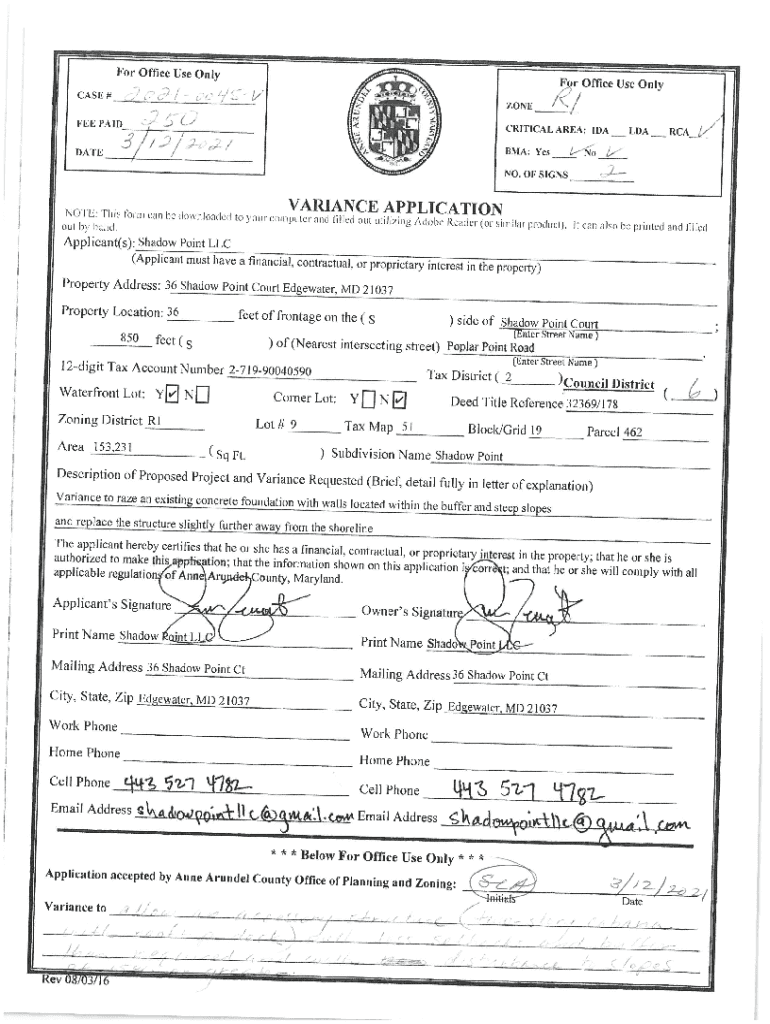 For Office Use Only
CASE # 2021-0045-V
FEE PAID 250
DATE 3/12/2021
ANNE ARUNDEL COUNTY MARYLAND
For Office Use Only
ZONE R1
CRITICAL AREA: IDA LDA RCA ✓
BMA: Yes No ✓
NO. OF SIGNS 2
VARIANCE APPLICATION
NOTE: This form can be downloaded to your computer and filled out utilizing Adobe Reader (or similar product). It can also be printed and filled
out by hand.
Applicant(s): Shadow Point LLC
(Applicant must have a financial, contractual, or proprietary interest in the property)
Property Address: 36 Shadow Point Court Edgewater, MD 21037
Property Location: 36 feet of frontage on the ( S ) side of Shadow Point Court ;
(Enter Street Name )
850 feet ( S ) of (Nearest intersecting street) Poplar Point Road .
(Enter Street Name )
12-digit Tax Account Number 2-719-90040590 Tax District ( 2 ) Council District ( 6 )
Waterfront Lot: Y ✓ N Corner Lot: Y N ✓ Deed Title Reference 32369/178
Zoning District R1 Lot # 9 Tax Map 51 Block/Grid 19 Parcel 462
Area 153,231 ( Sq Ft. ) Subdivision Name Shadow Point
Description of Proposed Project and Variance Requested (Brief, detail fully in letter of explanation)
Variance to raze an existing concrete foundation with walls located within the buffer and steep slopes
and replace the structure slightly further away from the shoreline
The applicant hereby certifies that he or she has a financial, contractual, or proprietary interest in the property; that he or she is
authorized to make this application; that the information shown on this application is correct; and that he or she will comply with all
applicable regulations of Anne Arundel County, Maryland.
Applicant's Signature Owner's Signature
Print Name Shadow Point LLC Print Name Shadow Point LLC
Mailing Address 36 Shadow Point Ct Mailing Address 36 Shadow Point Ct
City, State, Zip Edgewater, MD 21037 City, State, Zip Edgewater, MD 21037
Work Phone Work Phone
Home Phone Home Phone
Cell Phone 443 527 4782 Cell Phone 443 527 4782
Email Address shadowpointllc@gmail.com Email Address shadowpointllc@gmail.com
* * * Below For Office Use Only * * *
Application accepted by Anne Arundel County Office of Planning and Zoning: SCA 3/12/2021
Initials Date
Variance to allow an accessory structure
and
than required and with disturbance to slopes
Rev 08/03/16